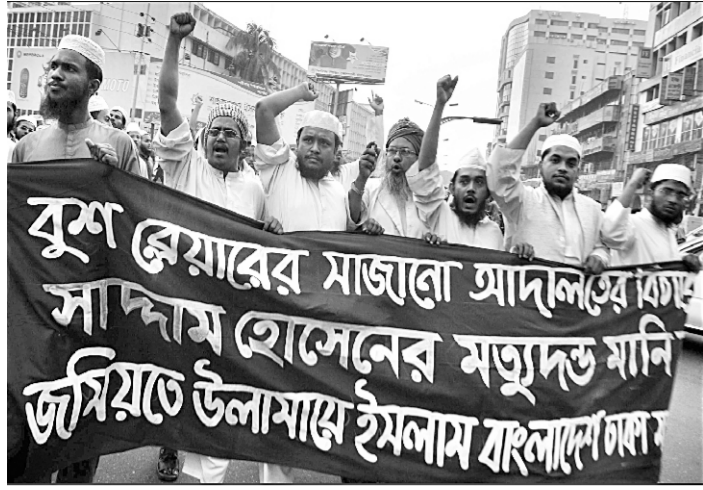 বুশ ব্লেয়ারের সাজানো আদালতের বিচারে
সাদ্দাম হোসেনের মত্যুদন্ড মানি
জমিয়তে উলামায়ে ইসলাম বাংলাদেশ ঢাকা ম